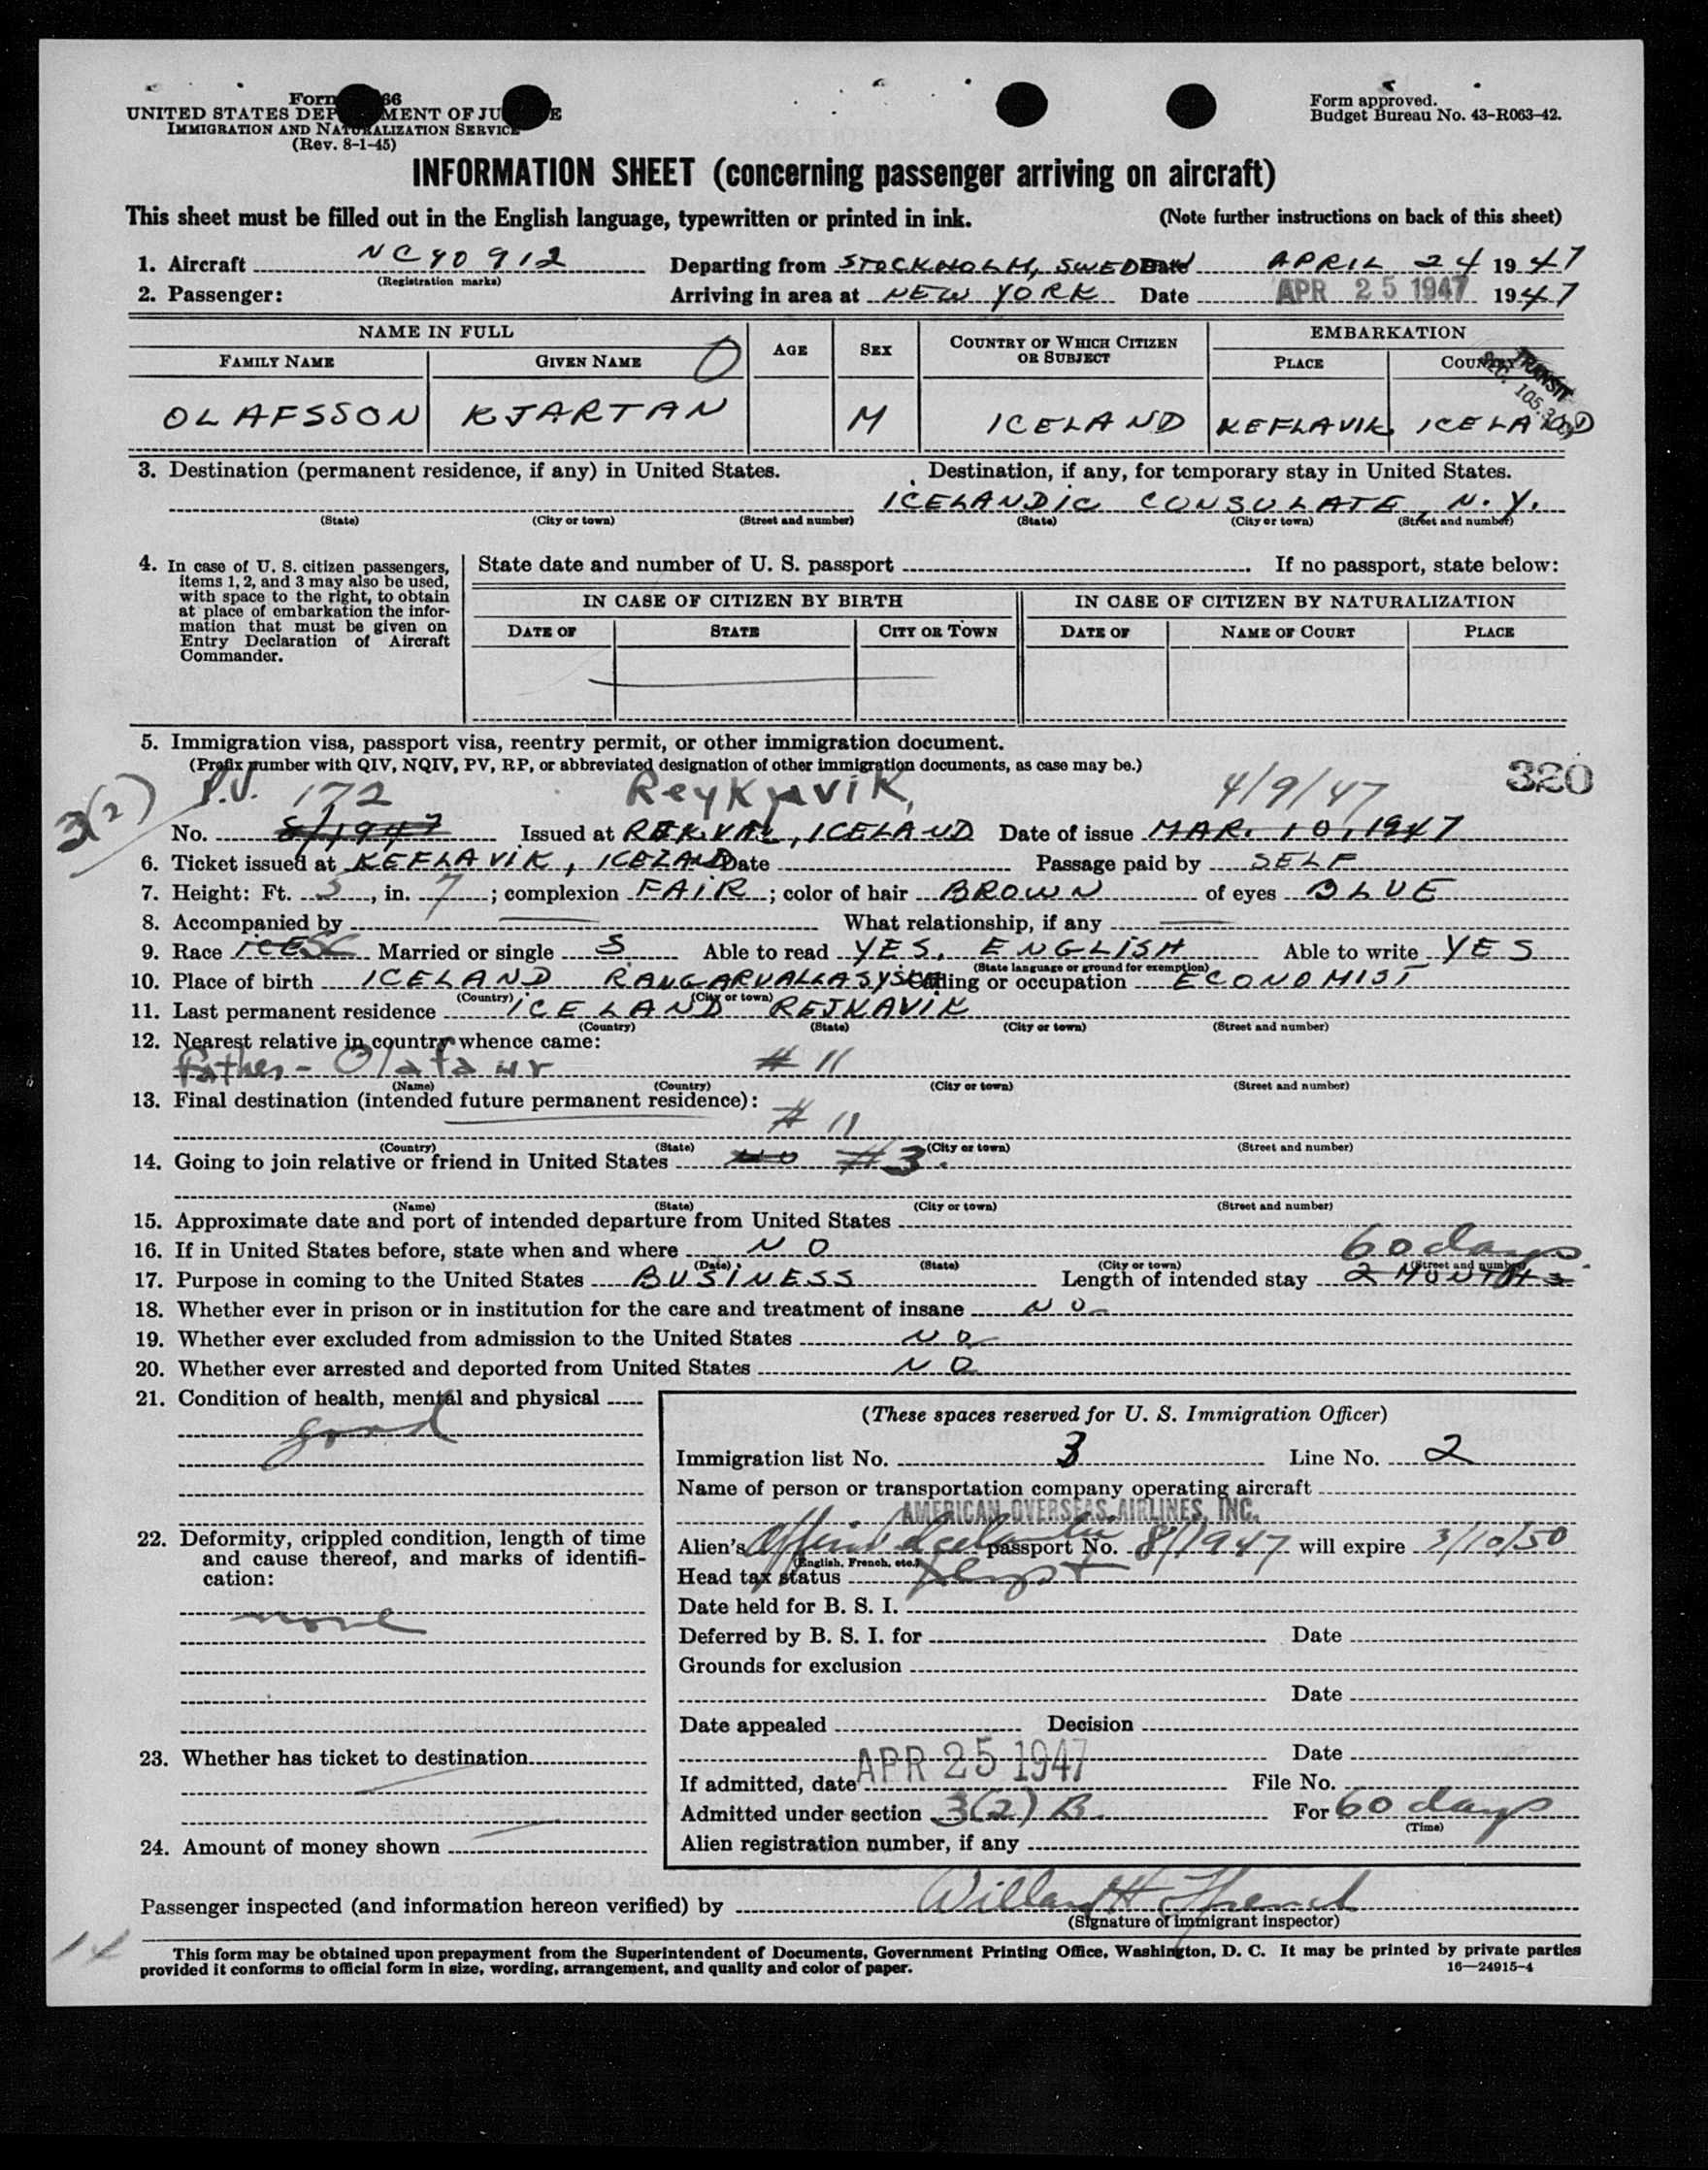 Form 66
UNITED STATES DEP MENT OF JU E
IMMIGRATION AND NATURALIZATION SERVICE
(Rev. 8-1-45)
Form approved.
Budget Bureau No. 43-R063-42.
INFORMATION SHEET (concerning passenger arriving on aircraft)
This sheet must be filled out in the English language, typewritten or printed in ink. (Note further instructions on back of this sheet)
1. Aircraft NC90912 Departing from STOCKHOLM, SWEDEN Date APRIL 24 1947
(Registration marks)
2. Passenger: Arriving in area at NEW YORK Date APR 25 1947 1947
NAME IN FULL AGE SEX COUNTRY OF WHICH CITIZEN OR SUBJECT EMBARKATION
FAMILY NAME GIVEN NAME O PLACE COUNTRY
TRANSIT
OLAFSSON KJARTAN M ICELAND KEFLAVIK ICELAND
3. Destination (permanent residence, if any) in United States. Destination, if any, for temporary stay in United States.
ICELANDIC CONSULATE, N.Y.
(State) (City or town) (Street and number) (State) (City or town) (Street and number)
4. In case of U. S. citizen passengers, items 1, 2, and 3 may also be used, with space to the right, to obtain at place of embarkation the information that must be given on Entry Declaration of Aircraft Commander.
State date and number of U. S. passport . If no passport, state below:
IN CASE OF CITIZEN BY BIRTH IN CASE OF CITIZEN BY NATURALIZATION
DATE OF STATE CITY OR TOWN DATE OF NAME OF COURT PLACE
5. Immigration visa, passport visa, reentry permit, or other immigration document.
(Prefix number with QIV, NQIV, PV, RP, or abbreviated designation of other immigration documents, as case may be.)
320
3(2) P.V. 172 Reykjavik, 4/9/47
No. 8/1947 Issued at , ICELAND Date of issue MAR. 10, 1947
6. Ticket issued at KEFLAVIK, ICELAND Date Passage paid by SELF
7. Height: Ft. 5, in. 7; complexion FAIR; color of hair BROWN of eyes BLUE
8. Accompanied by What relationship, if any
9. Race Married or single S. Able to read YES, ENGLISH Able to write YES
(State language or ground for exemption)
10. Place of birth ICELAND RANGARVALLASYSLA Calling or occupation ECONOMIST
(Country) (City or town)
11. Last permanent residence ICELAND REJKAVIK
(Country) (State) (City or town) (Street and number)
12. Nearest relative in country whence came:
Father - Olafaur # 11
(Name) (Country) (City or town) (Street and number)
13. Final destination (intended future permanent residence):
# 11
(Country) (State) (City or town) (Street and number)
14. Going to join relative or friend in United States NO #3.
(Name) (State) (City or town) (Street and number)
15. Approximate date and port of intended departure from United States
16. If in United States before, state when and where NO 60 days
(Date) (State) (City or town) (Street and number)
17. Purpose in coming to the United States BUSINESS Length of intended stay 2 MONTHS
18. Whether ever in prison or in institution for the care and treatment of insane NO
19. Whether ever excluded from admission to the United States NO
20. Whether ever arrested and deported from United States NO
21. Condition of health, mental and physical
good
22. Deformity, crippled condition, length of time and cause thereof, and marks of identification:
none
23. Whether has ticket to destination
24. Amount of money shown
(These spaces reserved for U. S. Immigration Officer)
Immigration list No. 3 Line No. 2
Name of person or transportation company operating aircraft
AMERICAN OVERSEAS AIRLINES, INC.
Alien's passport No. 8/1947 will expire 3/10/50
(English, French, etc.)
Head tax status
Date held for B. S. I.
Deferred by B. S. I. for Date
Grounds for exclusion
Date
Date appealed Decision
Date
If admitted, date APR 25 1947 File No.
Admitted under section 3(2) B. For 60 days
(Time)
Alien registration number, if any
Passenger inspected (and information hereon verified) by Willard H French
(Signature of immigrant inspector)
This form may be obtained upon prepayment from the Superintendent of Documents, Government Printing Office, Washington, D. C. It may be printed by private parties
provided it conforms to official form in size, wording, arrangement, and quality and color of paper. 16—24915-4